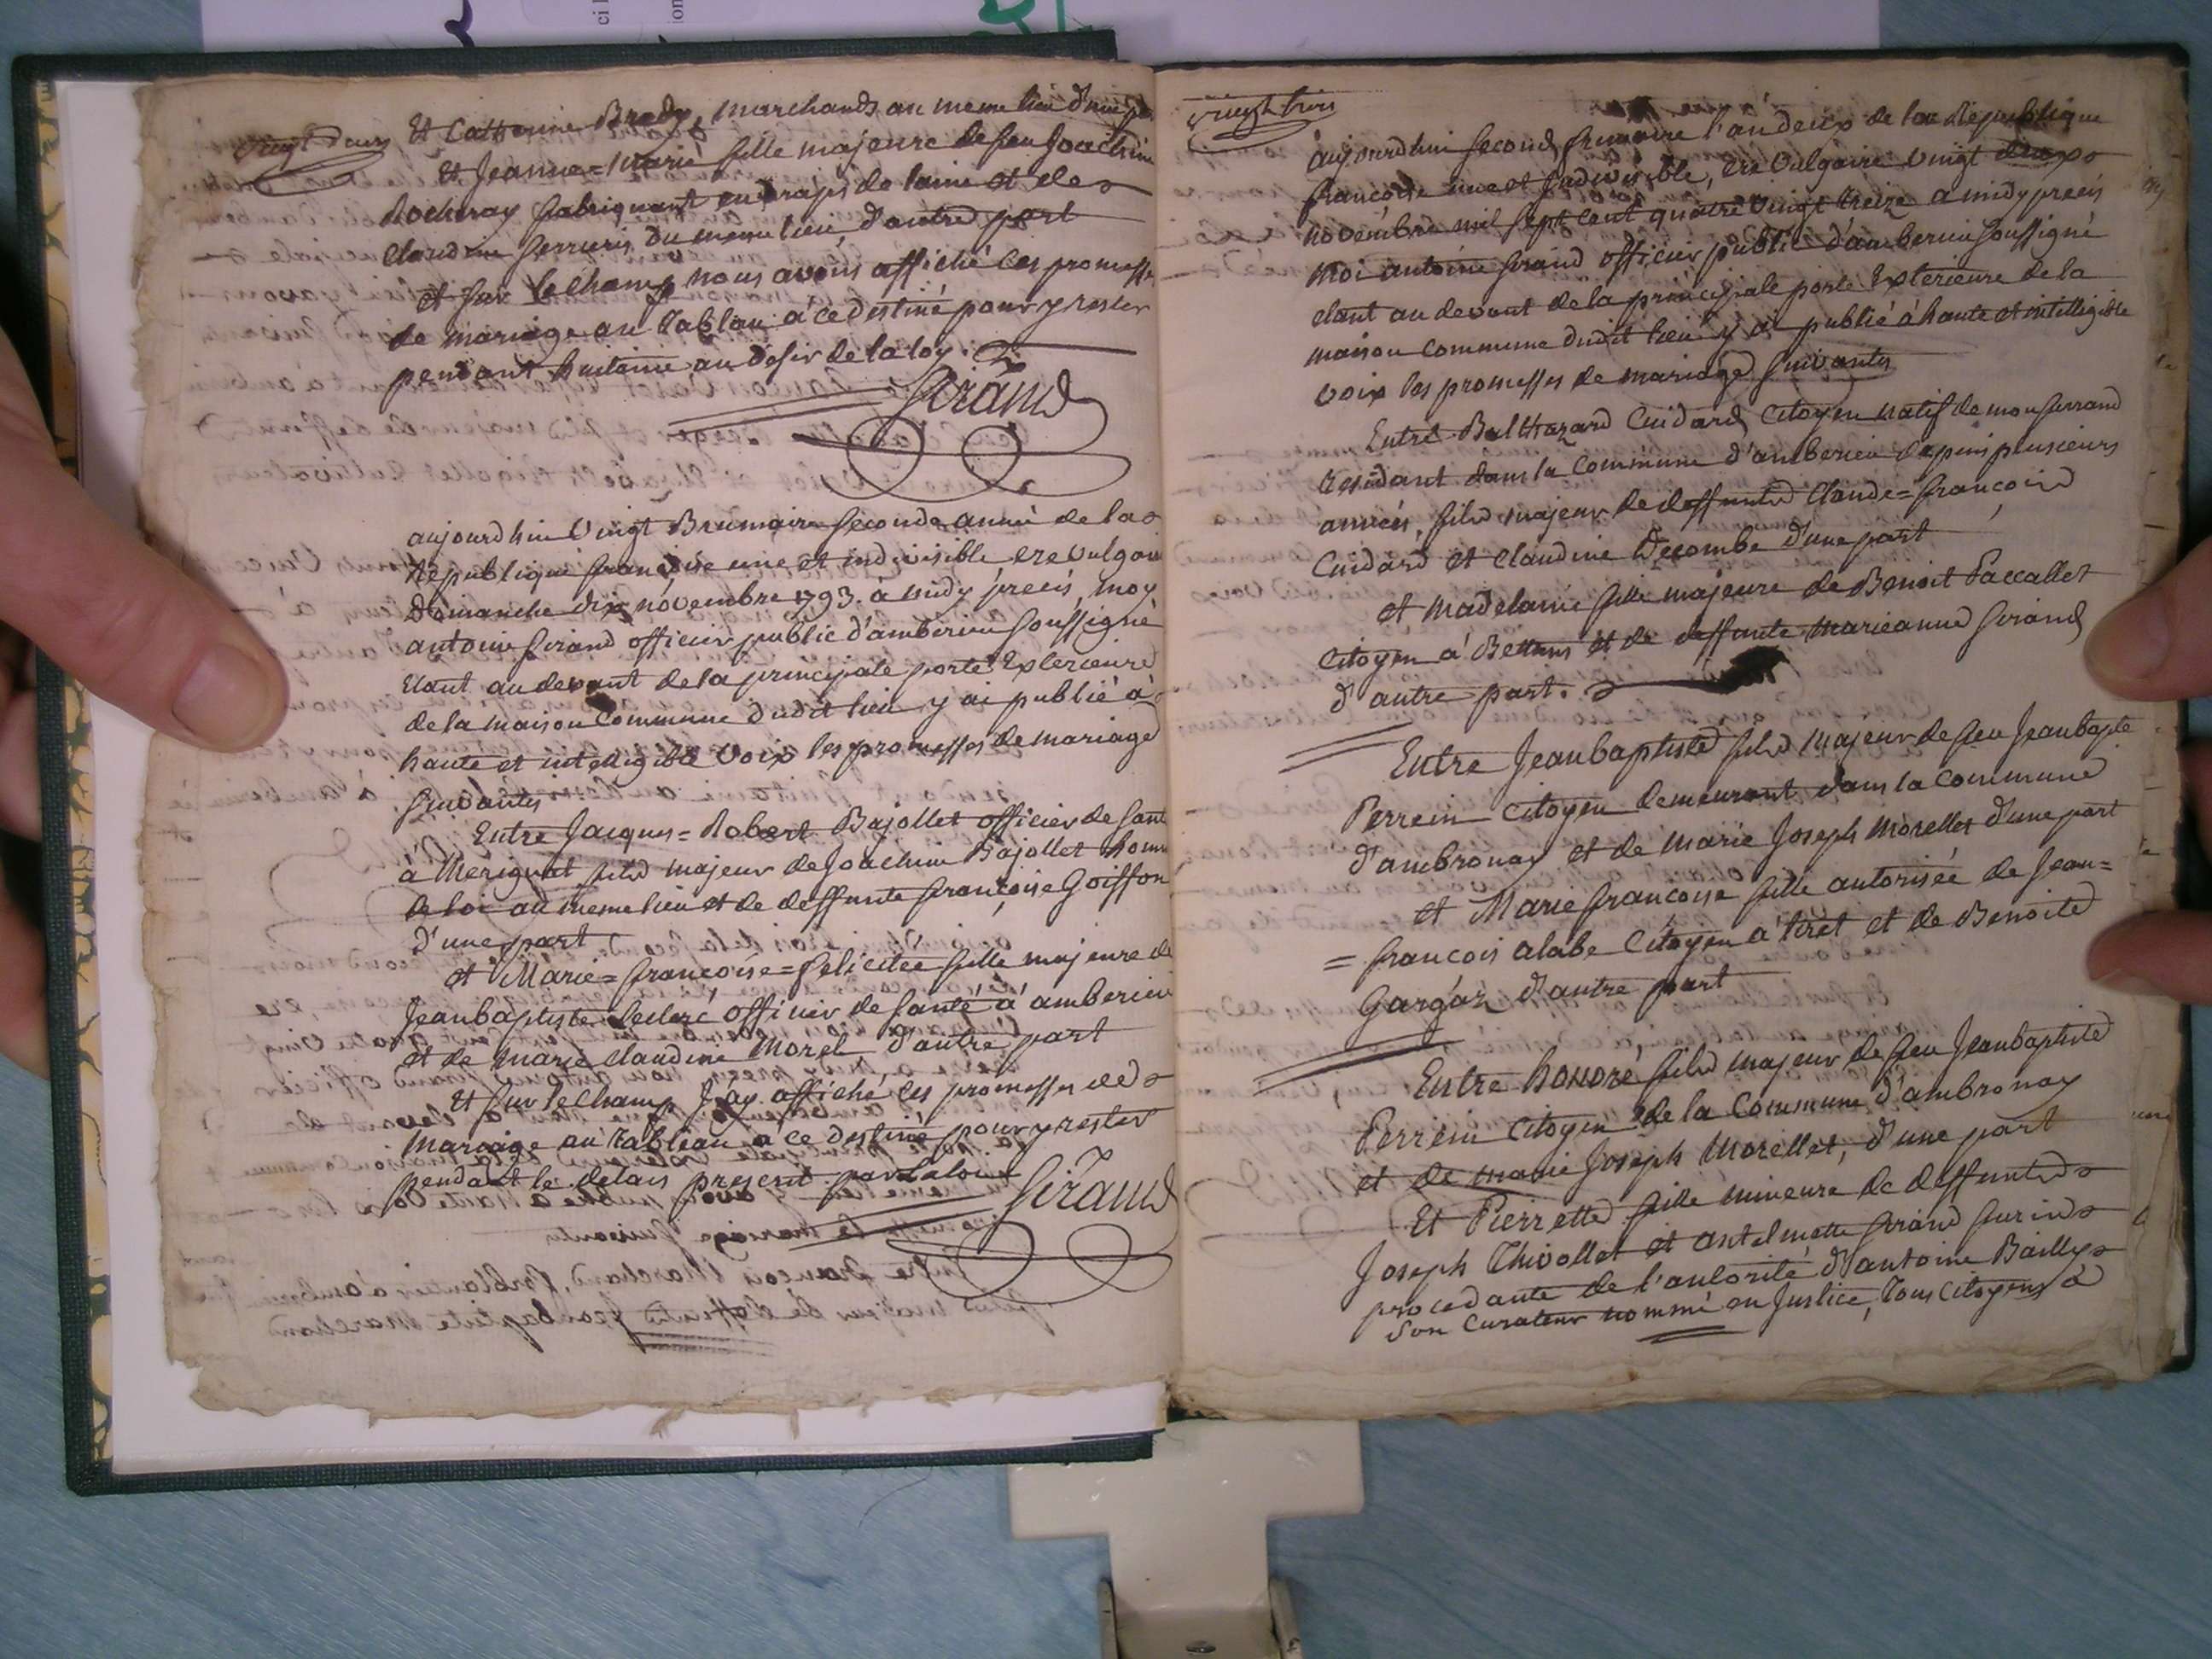 vingt deux
Et Catherine Bredy, marchands au meme lieu d'une p
Et Jeanne=Marie fille majeure de feu Joachim
Rocheray fabriquant en draps de laine et de
Claudine ferrieris du meme lieu, d'autre part
et sur le champ nous avons affiché les promesses
de mariage au tableau a ce destiné pour y rester
pendant huitaine au désir de la loy.
Girand
aujourdhui vingt Brumaire seconde année de la
République françoise une et indivisible, ere vulgaire
Dimanche dix novembre 1793. à midy precis, moy
antoine Girand officier public d'amberieu soussigné
Etant au devant de la principale porte Exterieure
de la maison Commune dudit lieu y ai publié à
haute et intelligible voix les promesses de mariage
suivantes
Entre Jacques=Robert Bajollet officier de santé
à Merignat fils majeur de Joachim Bajollet homme
de loi au meme lieu et de deffunte françoise Goiffon
d'une part
et Marie=françoise=felicitée fille majeure de
Jeanbaptiste Leclerc officier de santé à amberieu
et de marie claudine Morel, d'autre part
Et sur le champ J'ay affiché les promesses de
mariage au tableau a ce destiné pour y rester
pendant le delais prescrit par la loi
Girand
vingt trois
aujourdhui second frimaire l'an deux de la République
françoise une et Indivisible, ere vulgaire vingt deux
novembre mil sept cent quatre vingt treize a midy precis
moi antoine Girand officier public d'amberieu soussigné
etant au devant de la principale porte Exterieure de la
maison commune dudit lieu y ai publié à haute et intelligible
voix les promesses de mariage suivantes
Entre Balthazard Cuidard Citoyen natif de monferrand
residant dans la Commune d'amberieu depuis plusieurs
années, fils majeur de deffunts Claude=françois
Cuidard et Claudine Decombe d'une part
et madelaine fille majeure de Benoit Paccallet
Citoyen à Bettans et de deffunte marieanne Girand
d'autre part.
Entre Jeanbaptiste fils majeur de feu Jeanbapte
Perrein Citoyen demeurant dans la Commune
d'ambronay et de Marie Joseph Morellet d'une part
et Marie françoise fille autorisée de Jean=
=françois alabe Citoyen à tiret et de Benoite
Gargaz d'autre part
Entre honoré fils majeur de feu Jeanbaptiste
Perrein Citoyen de la Commune d'ambronay
et de marie Joseph Morellet, d'une part
Et Pierrette fille mineure de deffunts
Joseph Thivollet et antelmette Girand
procedante de l'autorité d'antoine Bailly
son Curateur nommé en Justice, tous Citoyens à